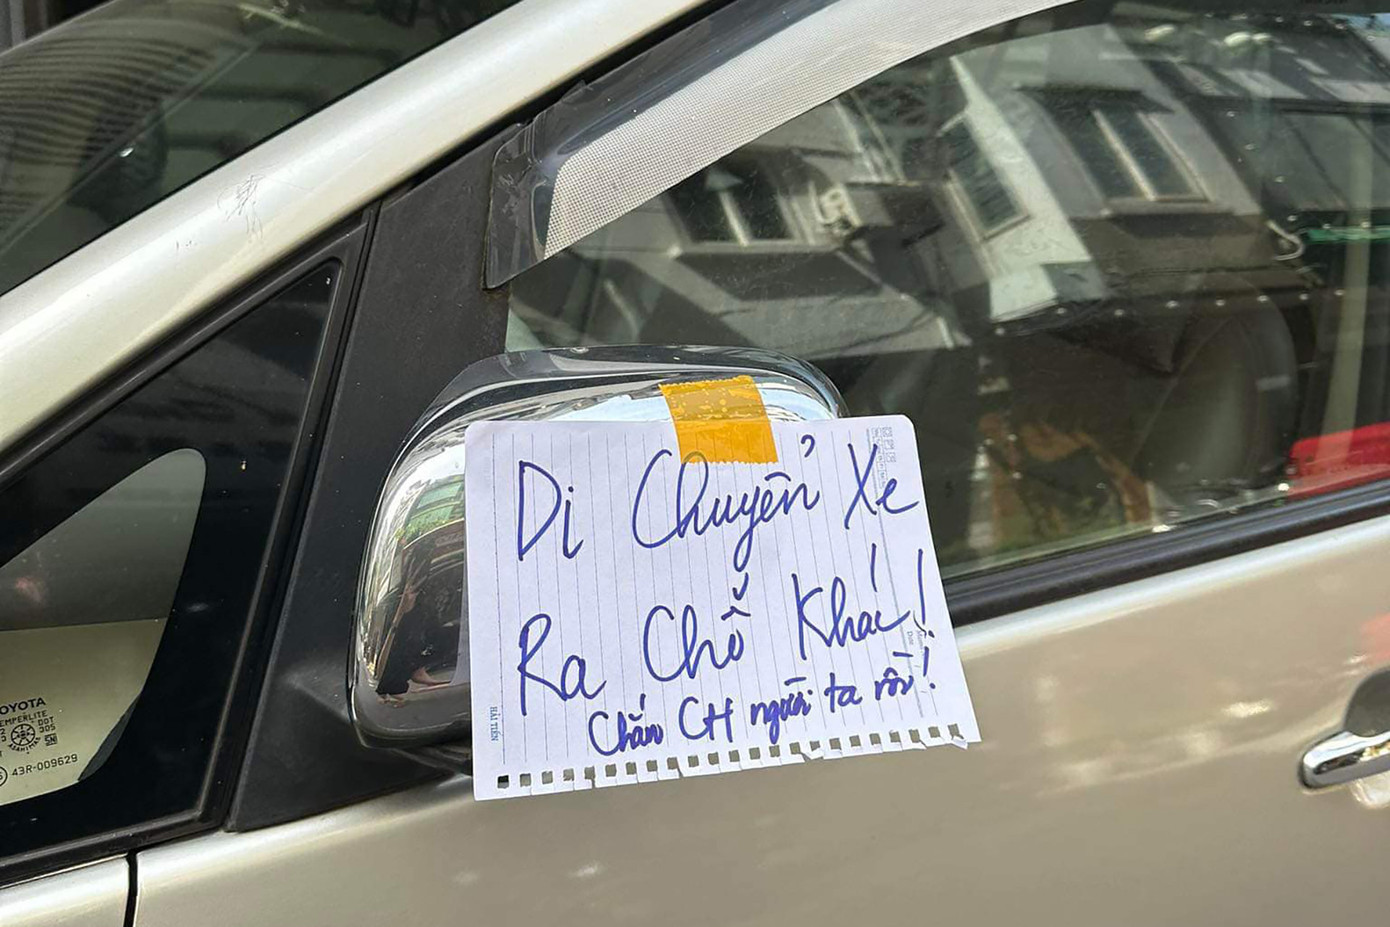 Di Chuyển Xe
Ra Chỗ Khác!
Chắn CH người ta rồi!
HẢI TIẾN
Date
TOYOTA
TEMPERLITE
DOT
43R-009629